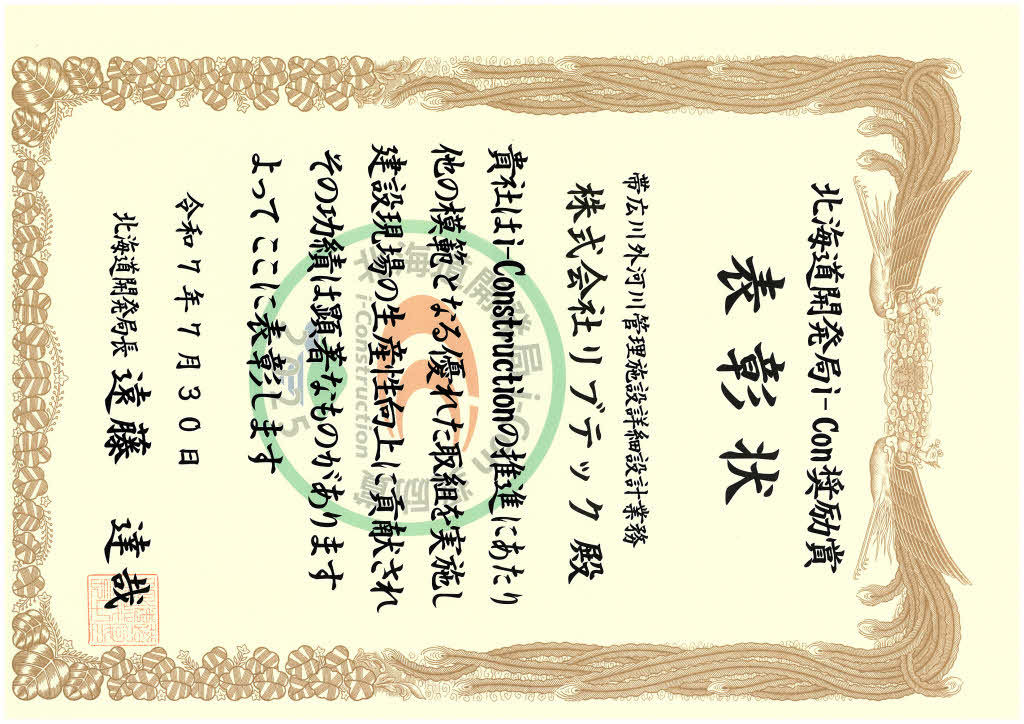 北海道開発局i-Con奨励賞
表彰状
帯広川外河川管理施設詳細設計業務
株式会社リブテック 殿
貴社はi-Constructionの推進にあたり
他の模範となる優れた取組を実施し
建設現場の生産性向上に貢献され
その功績は顕著なものがあります
よってここに表彰します
令和7年7月30日
北海道開発局長 遠藤 達哉
北海道開発局i-Con奨励賞
i-Construction
2025